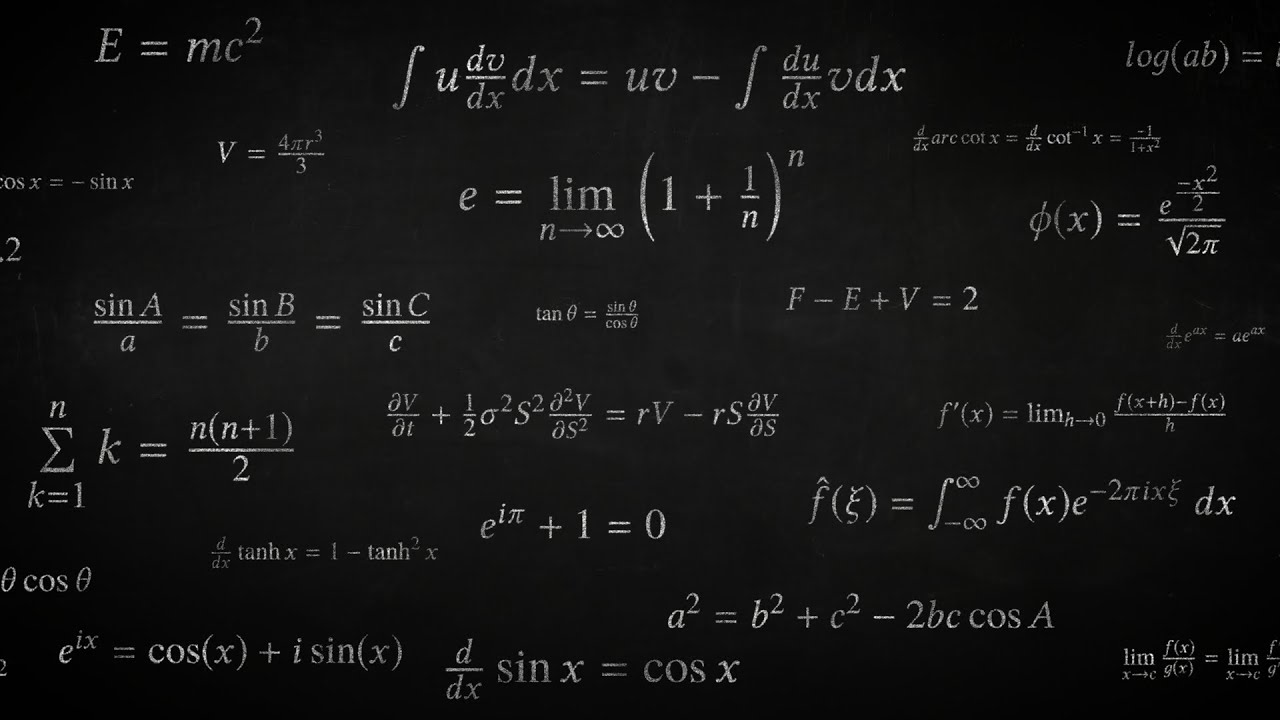 E = mc²
∫ u dv/dx dx = uv − ∫ du/dx vdx
log(ab) =
V = 4πr³/3
d/dx arc cot x = d/dx cot⁻¹ x = −1/1+x²
cos x = − sin x
e = lim n→∞ (1 + 1/n)ⁿ
ϕ(x) = e^(−x²/2)/√2π
.2
sin A/a = sin B/b = sin C/c
tan θ = sin θ/cos θ
F − E + V = 2
d/dx e^ax = ae^ax
n∑k=1 k = n(n+1)/2
∂V/∂t + 1/2 σ²S² ∂²V/∂S² = rV − rS ∂V/∂S
f′(x) = lim h→0 f(x+h)−f(x)/h
f̂(ξ) = ∫−∞^∞ f(x)e^−2πixξ dx
e^iπ + 1 = 0
d/dx tanh x = 1 − tanh² x
θ cos θ
a² = b² + c² − 2bc cos A
e^ix = cos(x) + i sin(x)
d/dx sin x = cos x
lim x→c f(x)/g(x) = lim x→c
2